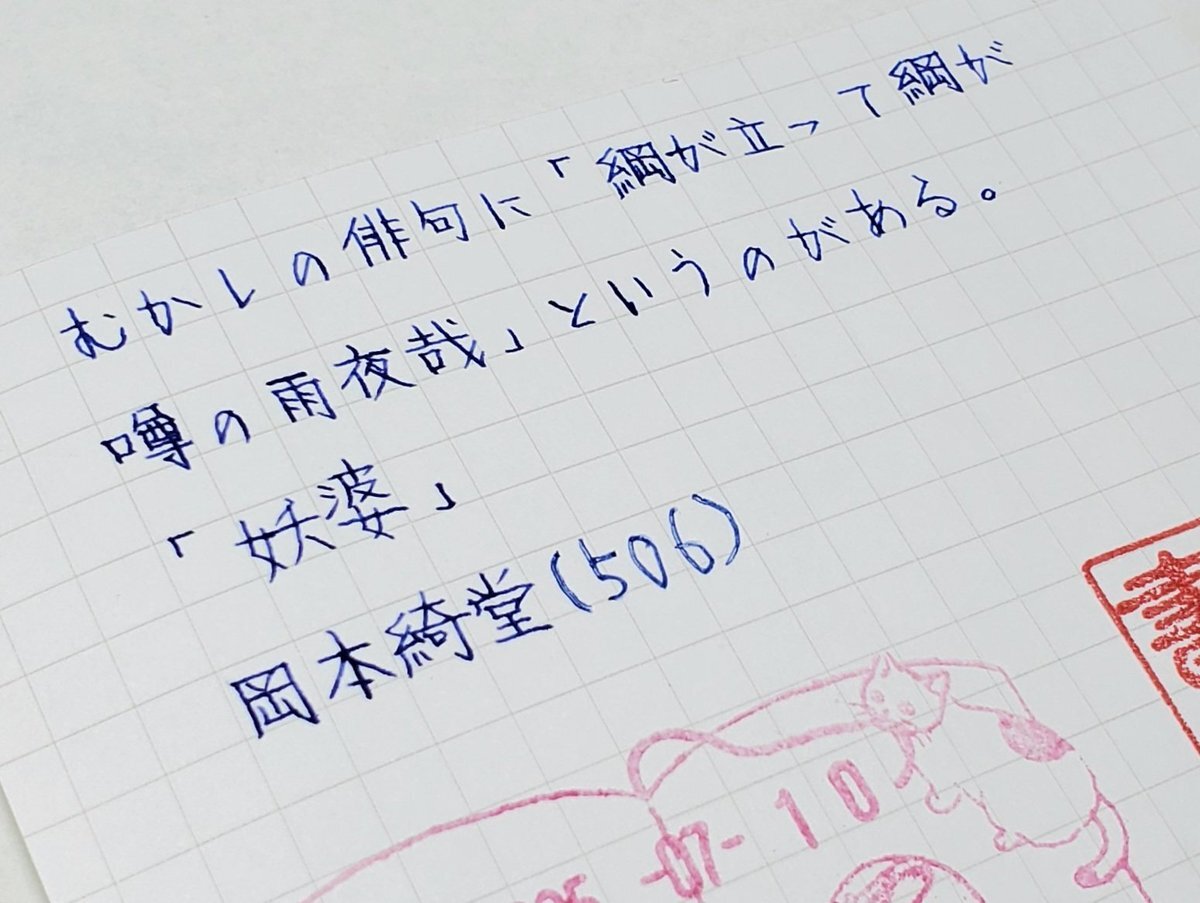 むかしの俳句に「綱が立って綱が
噂の雨夜哉」というのがある。
「妖婆」
岡本綺堂(506)
-07-10